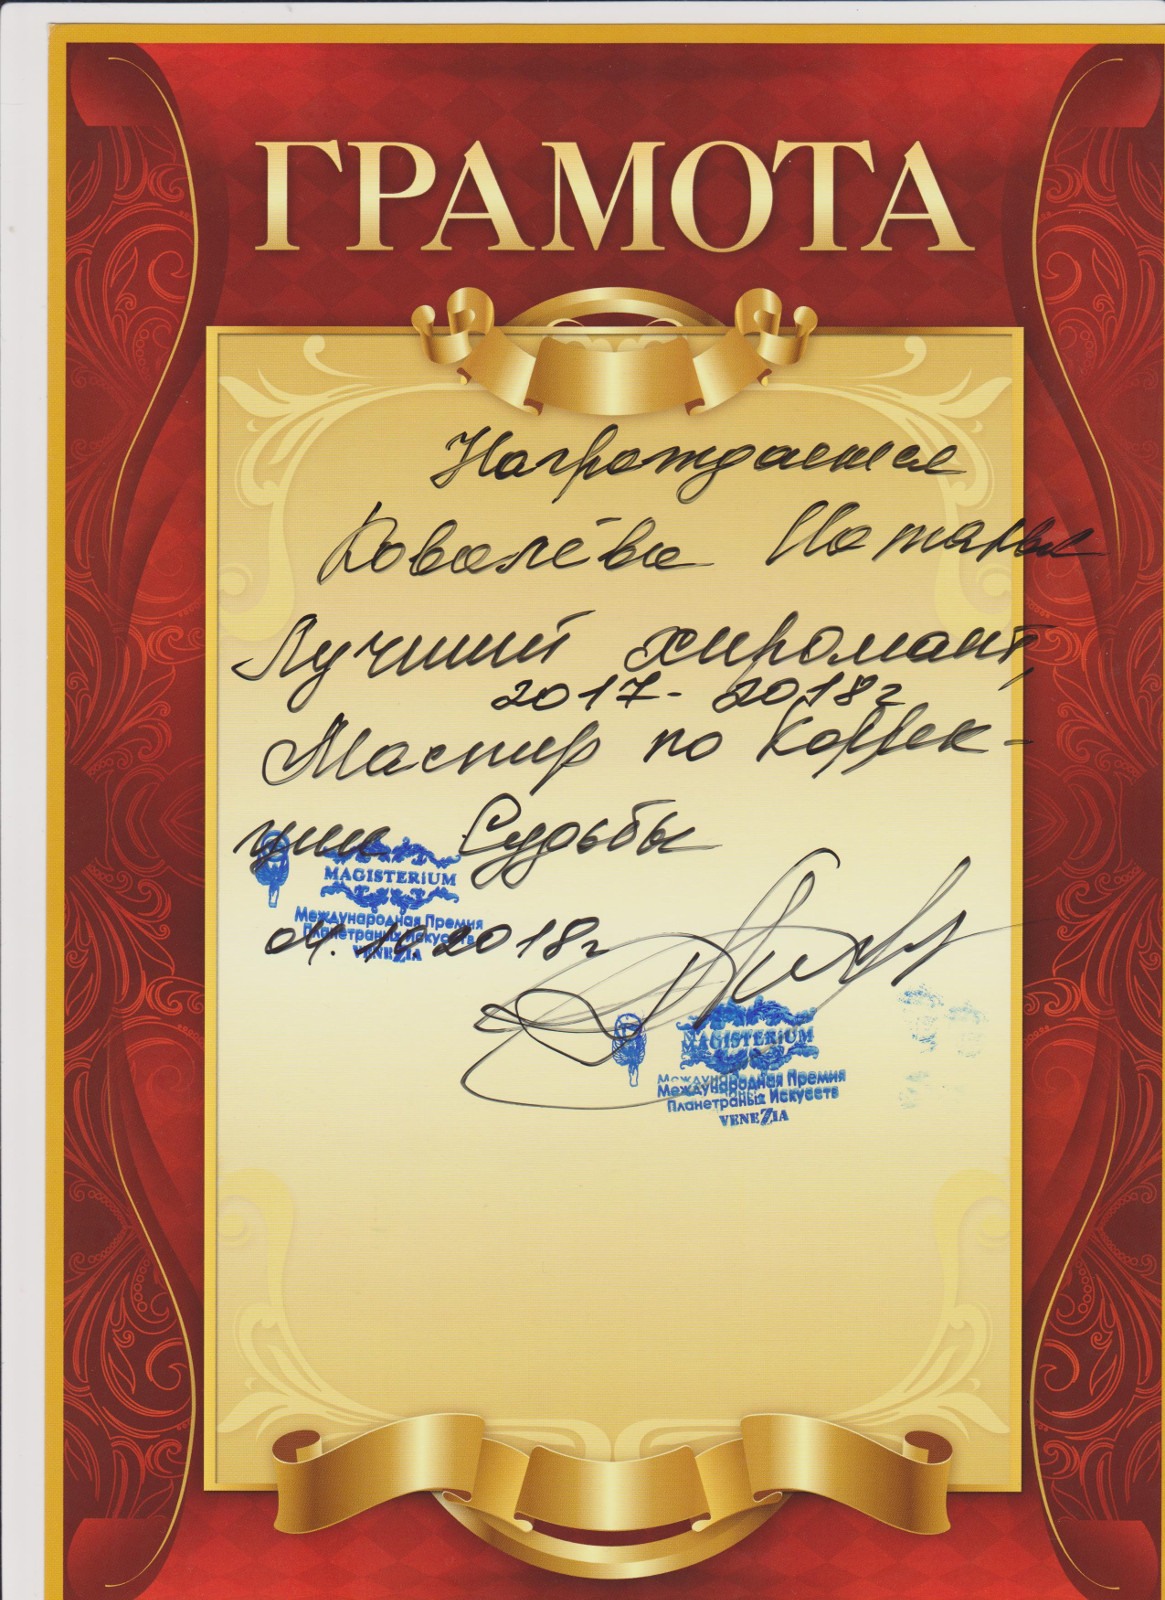 ГРАМОТА
Награждается
Ковалёва Наталья
Лучший хиромант,
2017- 2018г
Мастер по Коррек-
ции Судьбы
MAGISTERIUM
Международная Премия
Планетраных Искусств
VENEZIA
04.10.2018г
MAGISTERIUM
Международная Премия
Планетраных Искусств
VENEZIA